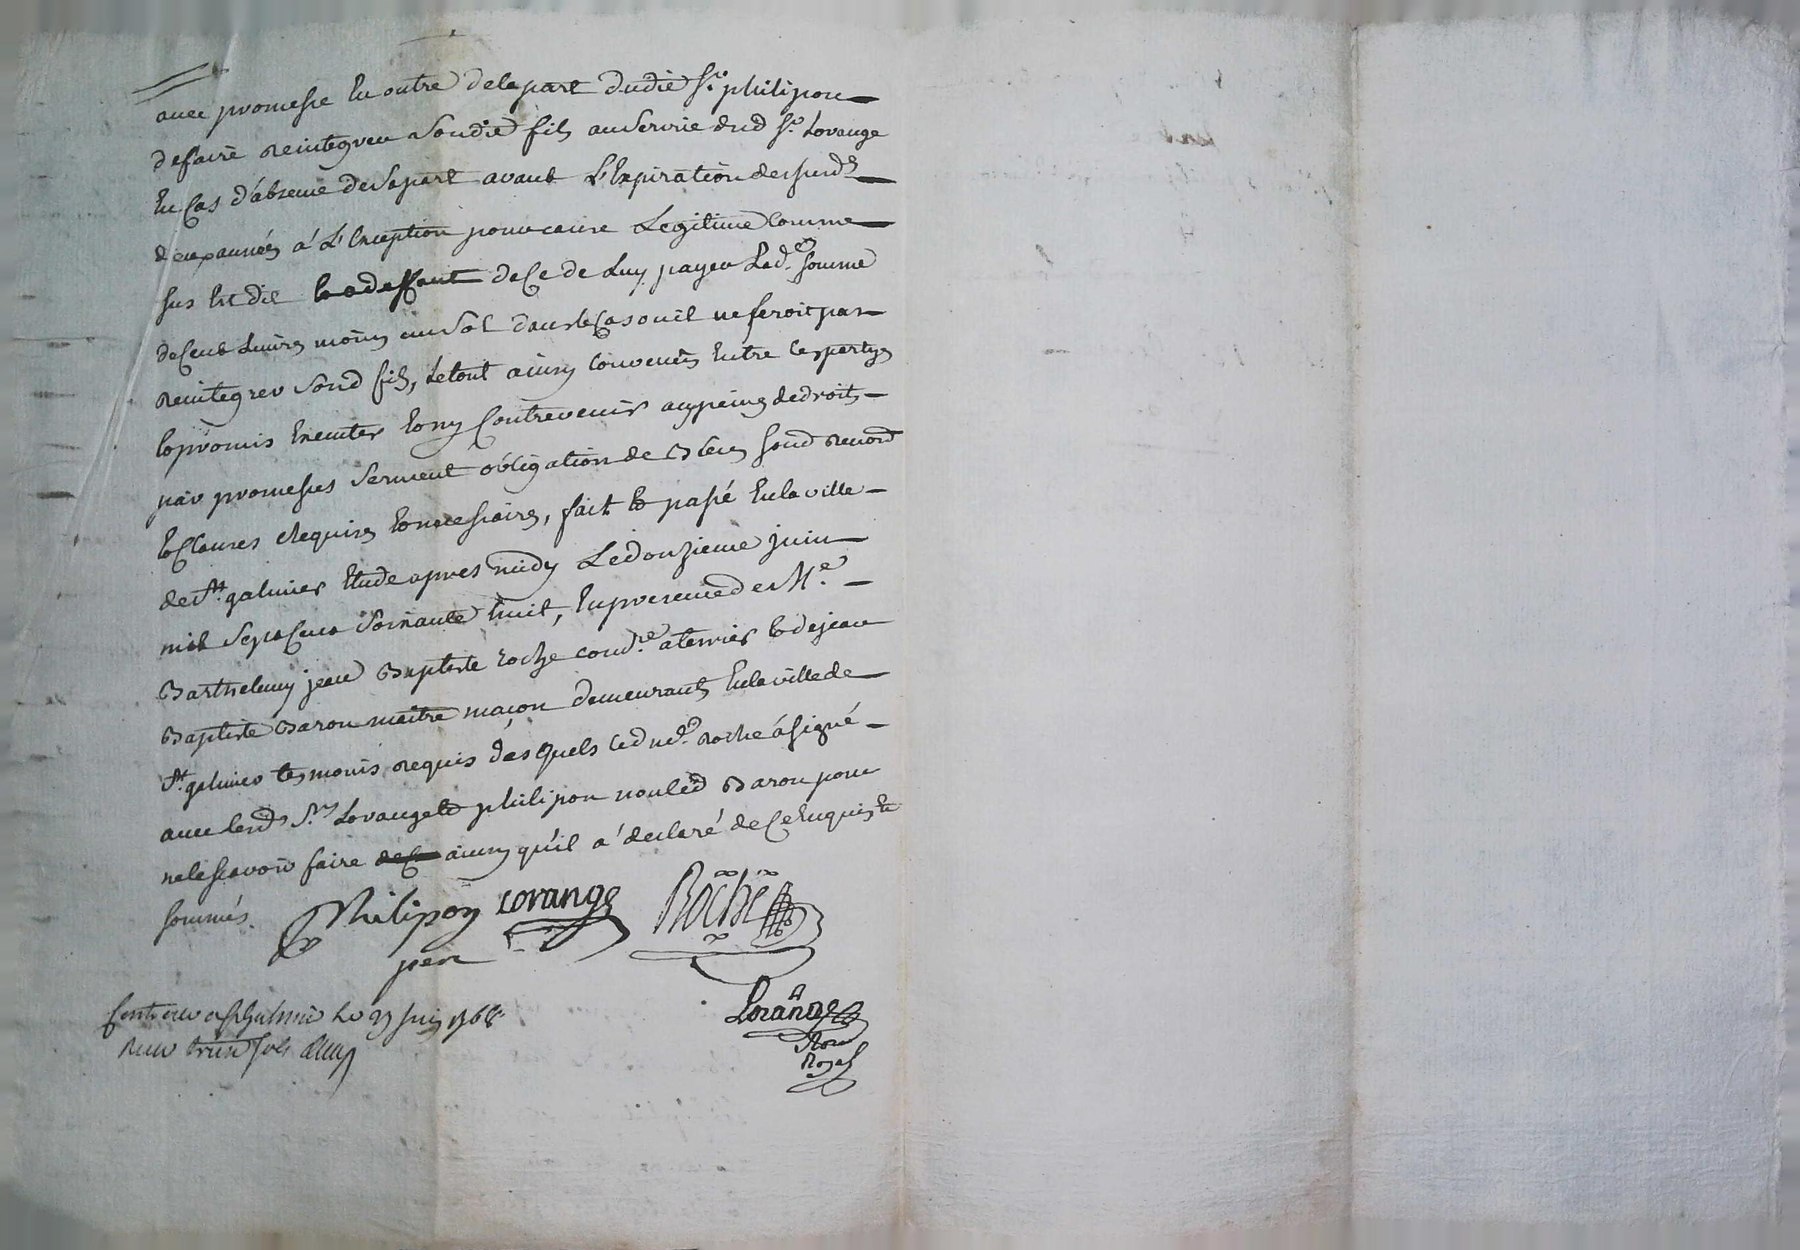 avec promesse En outre de la part dudit Sr. philipon
de faire reintegrer Son dit fils au Service dud Sr. Lorange
En Cas d'absence de Sa part avant L'Expiration dessusds
deux années á L'Exception pour cause Legitime Comme
sus Est dit de Ce de Luy payer Lad. somme
de Cent Livres moins un Sol dans le Cas ou il ne feroit pas
reintegrer Sond fils, Le tout ainsy Convenus Entre Les partys
Et promis Executer Et ny Contrevenir aux peines de droits
par promesses Serment obligation de Biens
Et Clauses Requises Et necessaires, fait Et passé En la ville
de St. galmier Etude apres midy Le douzieme juin
mil Sept Cent Soixante huit, En presence de Me.
Barthelemy jean Baptiste roche a terrier Et de jean
Baptiste Baron maitre maçon demeurants En la ville de
St. galmier temoins requis desquels Led me. roche á signé
avec lesds Srs Lorange Et philipon non led Baron pour
ne le sçavoir faire ainsy qu'il a déclaré de Ce Enquis Et
sommés.
Philipon Lorange Roche
pere
Lorange
Nore
Royal
Controllé a St Galmier Le juin 1768
Recu Sols